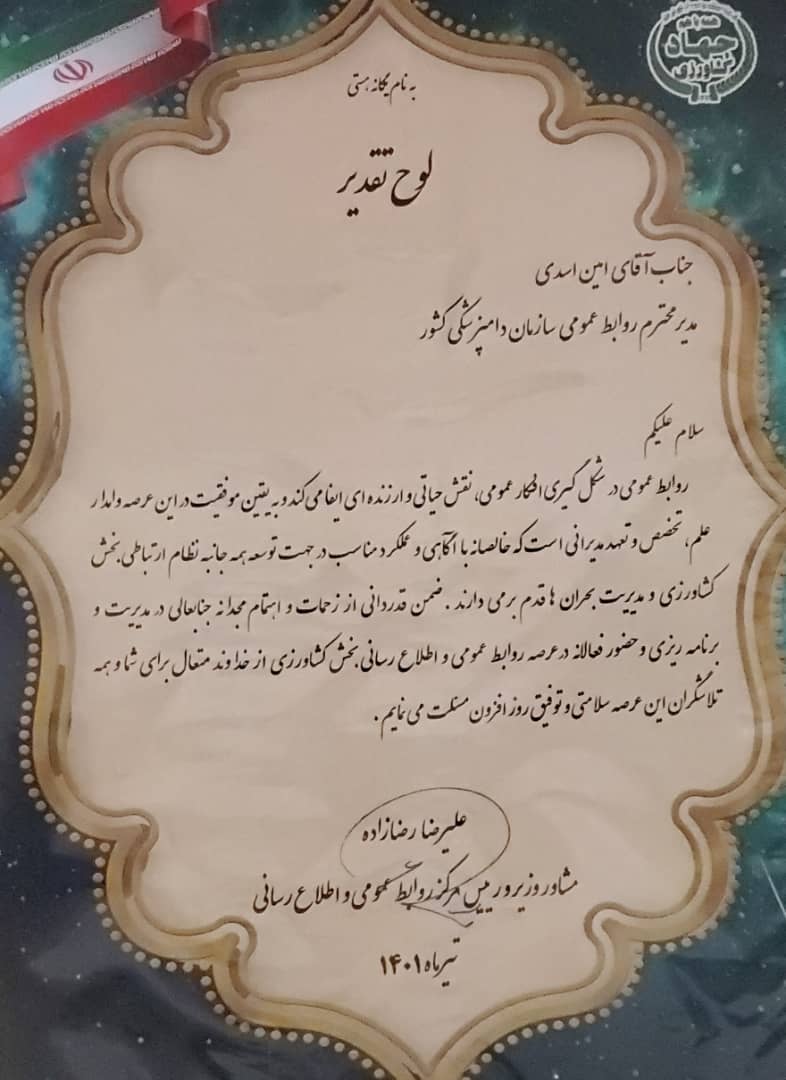 همه با هم
جهاد
کشاورزی
به نام یگانه هستی
لوح تقدیر
جناب آقای امین اسدی
مدیر محترم روابط عمومی سازمان دامپزشکی کشور
سلام علیکم
روابط عمومی در شکل گیری افکار عمومی، نقش حیاتی و ارزنده ای ایفا می کند و به یقین موفقیت در این عرصه وامدار
علم، تخصص و تعهد مدیرانی است که خالصانه با آگاهی و عملکرد مناسب در جهت توسعه همه جانبه نظام ارتباطی بخش
کشاورزی و مدیریت بحران ها قدم برمی دارند. ضمن قدردانی از زحمات و اهتمام مجدانه جنابعالی در مدیریت و
برنامه ریزی و حضور فعالانه در عرصه روابط عمومی و اطلاع رسانی بخش کشاورزی از خداوند متعال برای شما و همه
تلاشگران این عرصه سلامتی و توفیق روز افزون مسئلت می نمایم.
علیرضا رضازاده
مشاور وزیر و رییس مرکز روابط عمومی و اطلاع رسانی
تیرماه ۱۴۰۱